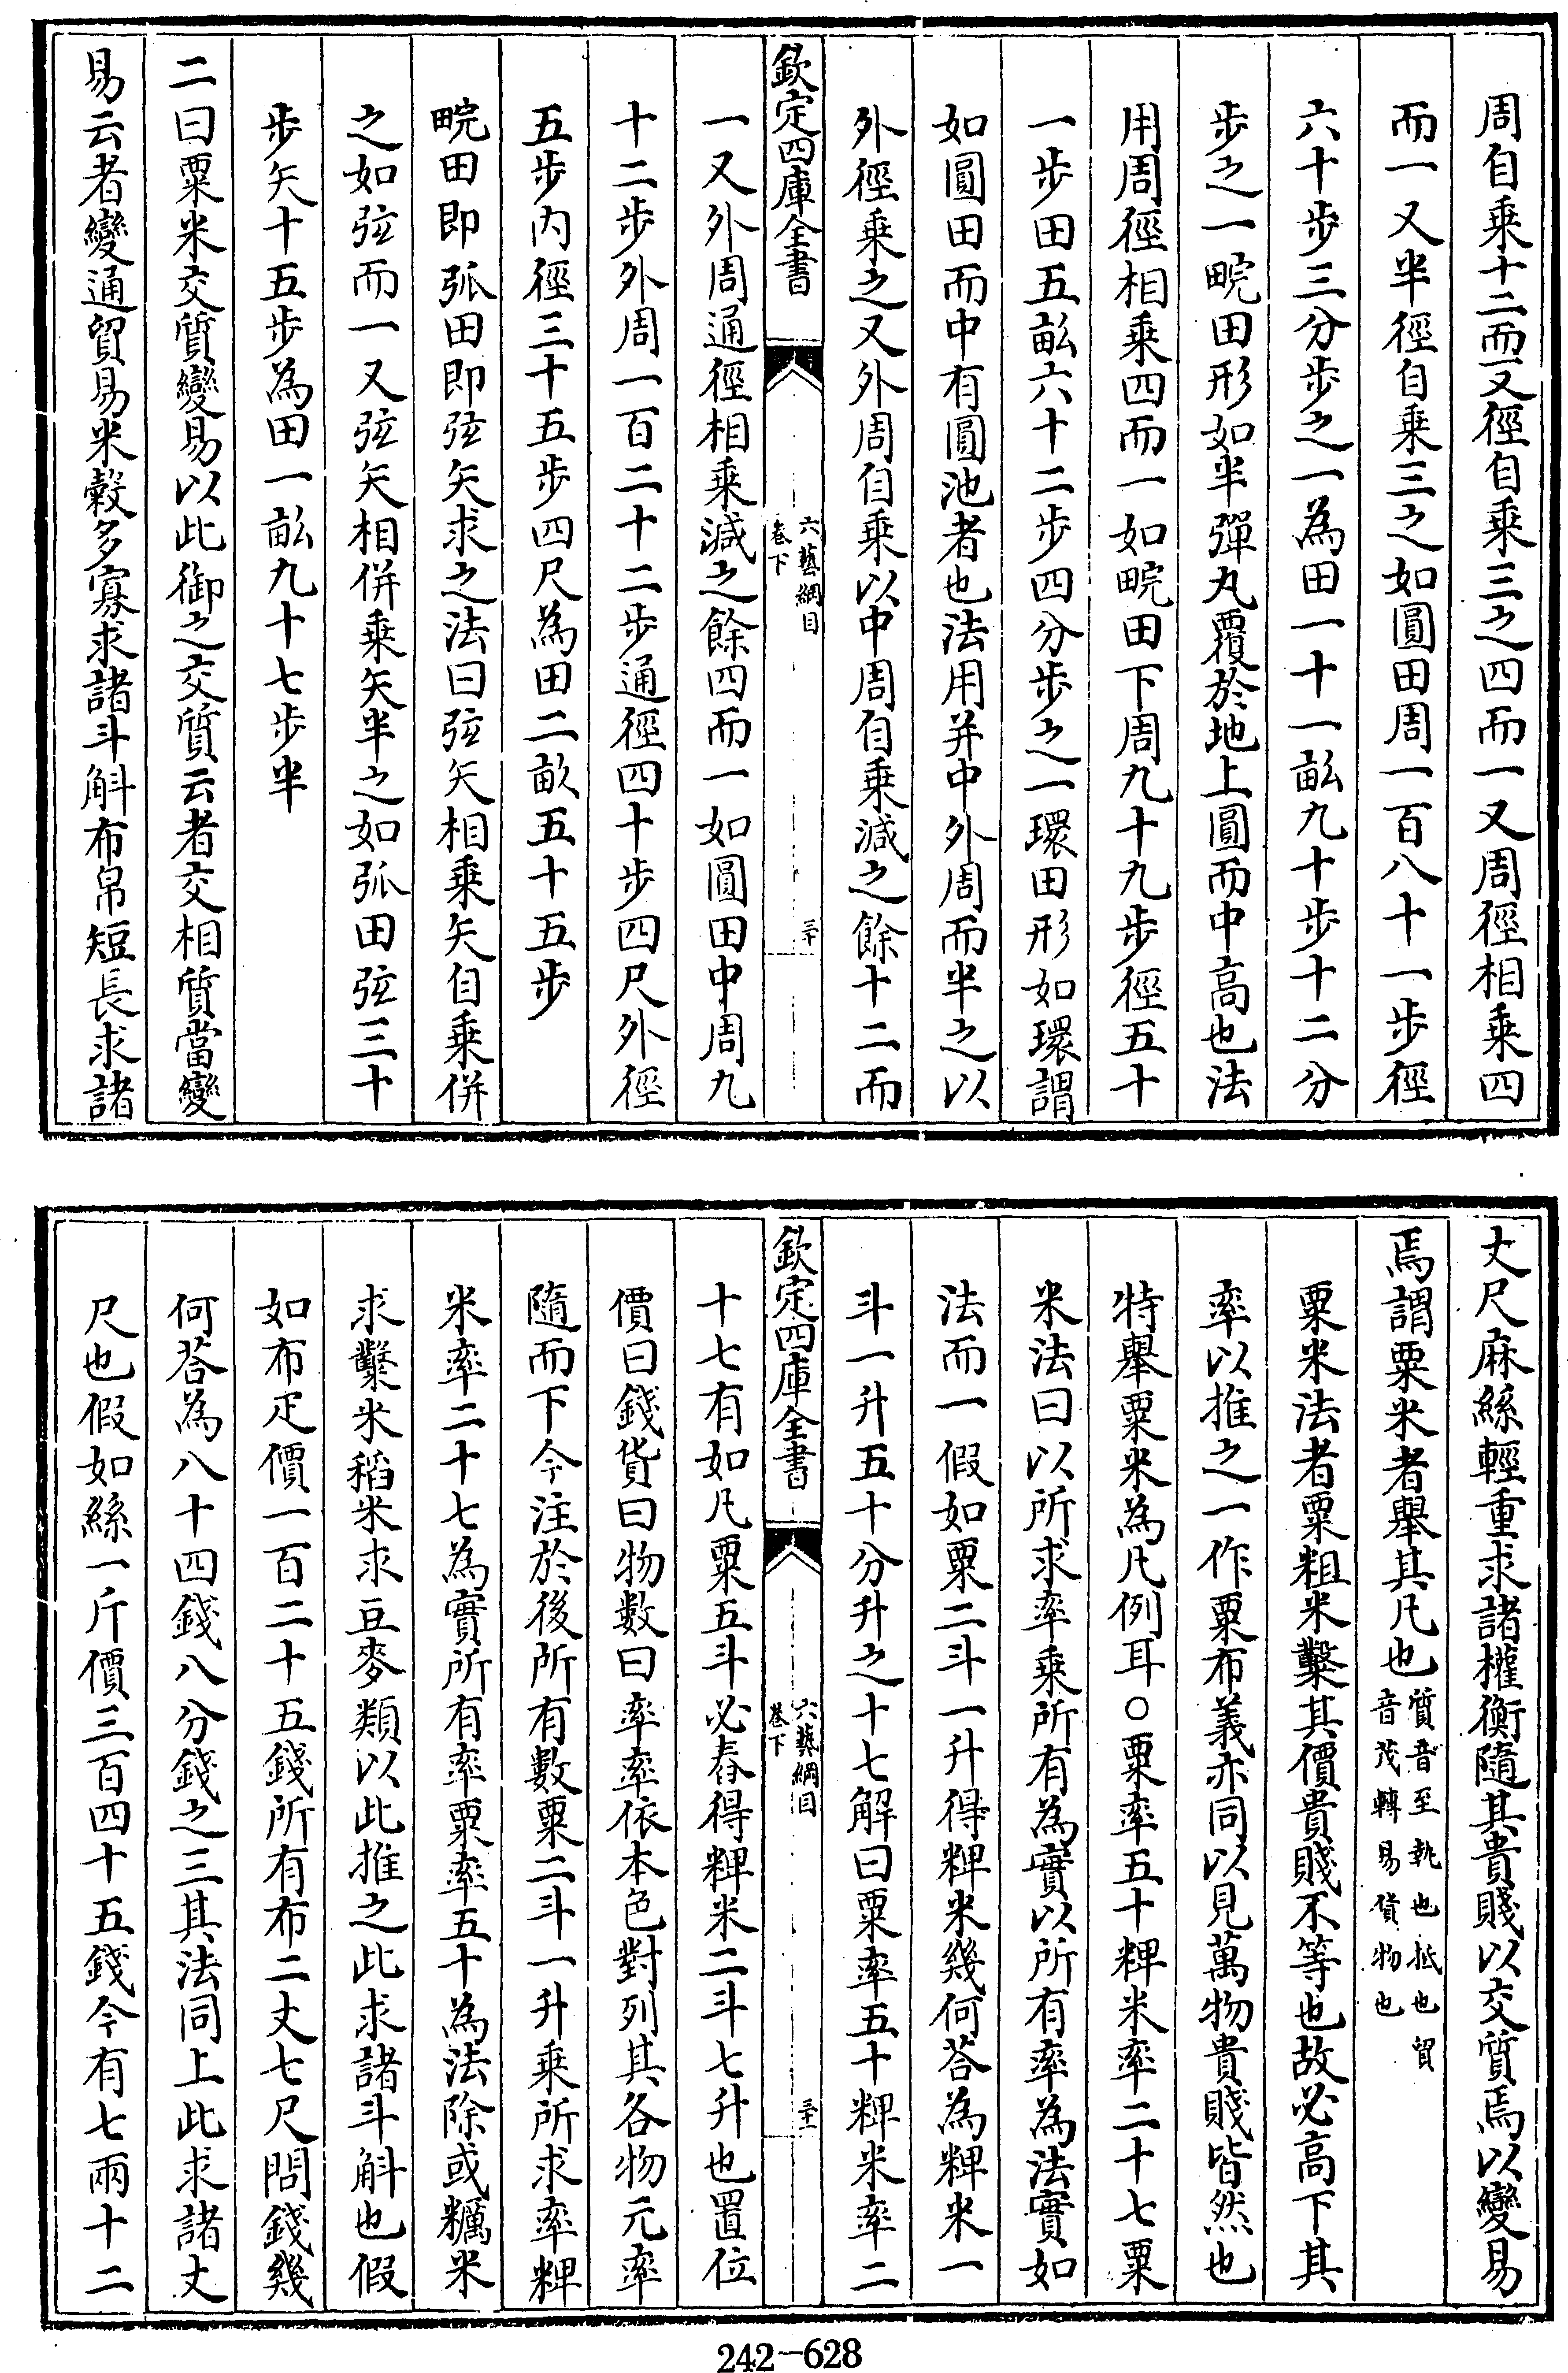 周自乗十二而一又徑自乗三之四而一又周徑相乗四
而一又半徑自乗三之如圓田周一百八十一步徑
六十步三分步之一為田一十一畝九十步十二分
步之一畹田形如半彈丸覆於地上圓而中高也法
用周徑相乗四而一如畹田下周九十九步徑五十
一步田五畝六十二步四分步之一環田形如環謂
如圓田而中有圓池者也法用并中外周而半之以
外徑乗之又外周自乗以中周自乗減之餘十二而
欽定四庫全書
六藝綱目
卷下
三十
一又外周通徑相乗減之餘四而一如圓田中周九
十二步外周一百二十二步通徑四十步四尺外徑
五步内徑三十五步四尺為田二畝五十五步
畹田即弧田即弦矢求之法曰弦矢相乗矢自乗併
之如弦而一又弦矢相併乗矢半之如弧田弦三十
步矢十五步為田一畝九十七步半
二曰粟米交質變易以此御之交質云者交相質當變
易云者變通貿易米穀多寡求諸斗斛布帛短長求諸
丈尺麻絲輕重求諸權衡隨其貴賤以交質焉以變易
焉謂粟米者舉其凡也質音至執也抵也貿
音茂轉易貨物也
粟米法者粟粗米鑿其價貴賤不等也故必高下其
率以推之一作粟布義亦同以見萬物貴賤皆然也
特舉粟米為凡例耳○粟率五十粺米率二十七粟
米法曰以所求率乗所有為實以所有率為法實如
法而一假如粟二斗一升得粺米幾何荅為粺米一
斗一升五十分升之十七解曰粟率五十粺米率二
欽定四庫全書
六藝綱目
卷下
三十一
十七有如凡粟五斗必舂得粺米二斗七升也置位
價曰錢貨曰物数曰率率依本色對列其各物元率
隨而下今注於後所有數粟二斗一升乗所求率粺
米率二十七為實所有率粟率五十為法除或糲米
求糳米稻米求豆麥類以此推之此求諸斗斛也假
如布疋價一百二十五錢所有布二丈七尺問錢幾
何荅為八十四錢八分錢之三其法同上此求諸丈
尺也假如絲一斤價三百四十五錢今有七兩十二
242-628